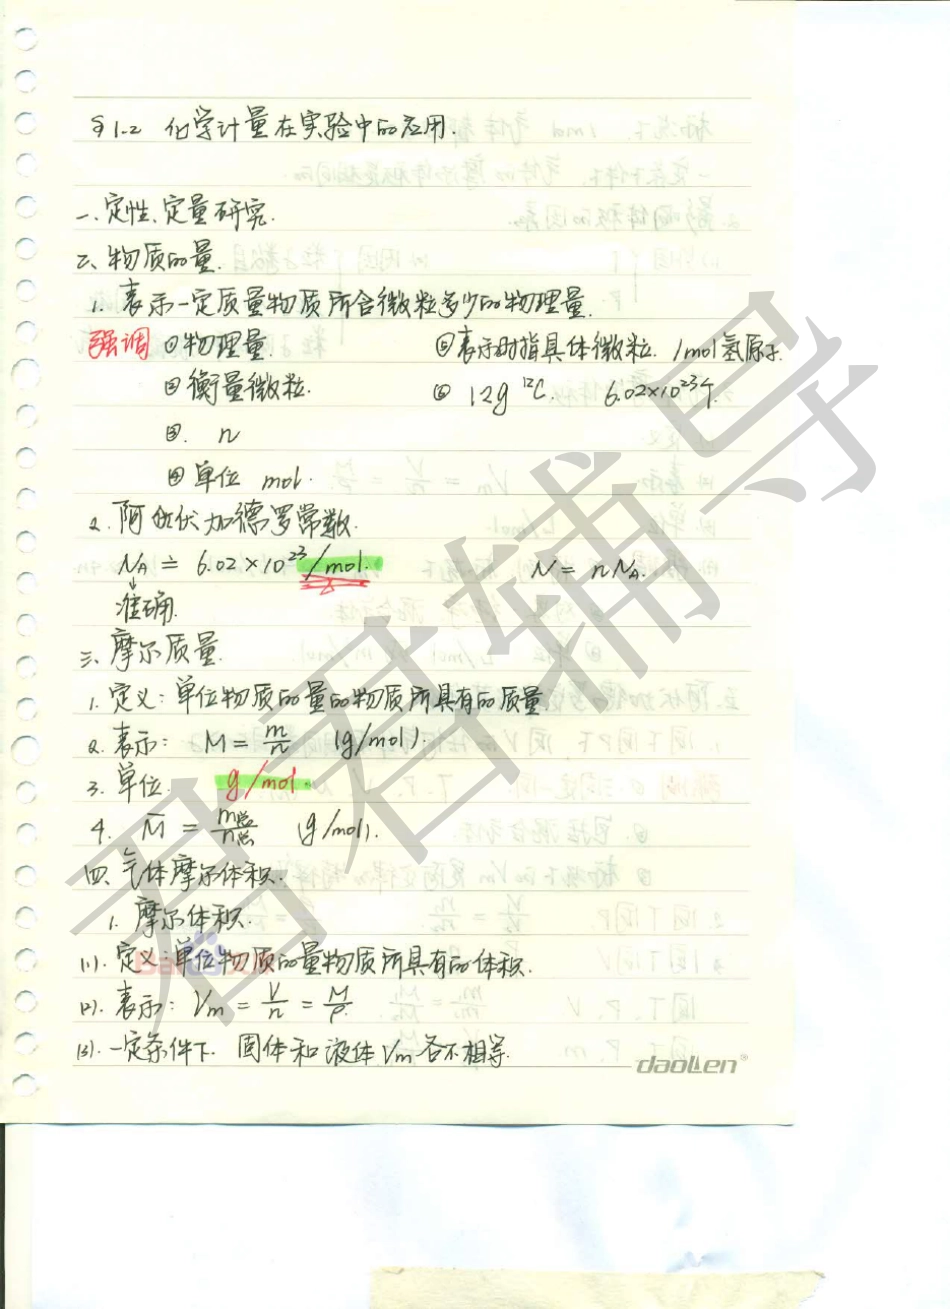 §1-2 化学计量在实验中的应用.
一、定性、定量研究.
二、物质的量.
1. 表示一定质量物质所含微粒多少的物理量.
强调 ①物理量. ⑤表示时指具体微粒. 1mol氢原子.
②衡量微粒. ⑥ 12g ¹²C. 6.02×10²³个.
③. n
④单位 mol.
2. 阿伏伏加德罗常数.
N_A ≐ 6.02×10²³/mol. N = nN_A.
↓
准确.
三、摩尔质量.
1. 定义: 单位物质的量的物质所具有的质量
2. 表示: M = m/n (g/mol).
3. 单位. g/mol.
4. M̄ = m总/n总 (g/mol).
四、气体摩尔体积.
1. 摩尔体积.
(1). 定义: 单位物质的量物质所具有的体积.
(2). 表示: Vm = V/n = M/ρ.
(3). 一定条件下. 固体和液体Vm各不相等.
daoLen®
君君辅导